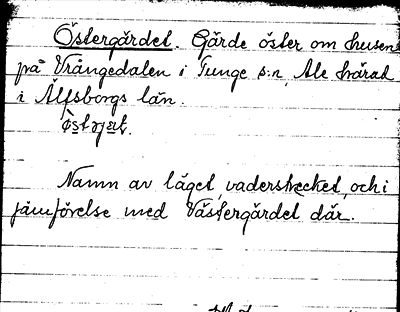 Östergärdet. Gärde öster om husen
på Vrångedalen i Tunge s:n, Ale härad
i Älfsborgs län.
Namn av läget, väderstrecket, och i
jämförelse med Västergärdet där.